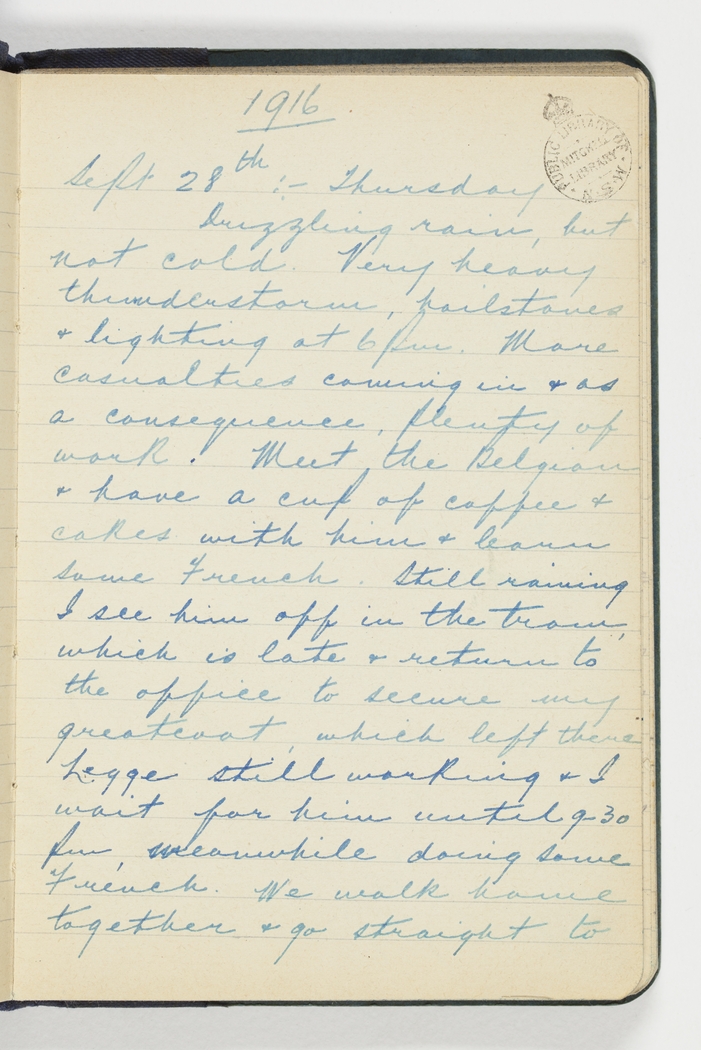 1916.
PUBLIC LIBRARY OF N.S.W.
MITCHELL
LIBRARY
Sept 28th :- Thursday
Drizzling rain, but
not cold. Very heavy
thunderstorm, hailstones
& lighting at 6 pm. More
casualties coming in & as
a consequence, plenty of
work. Meet the Belgian
& have a cup of coffee &
cakes with him & learn
some French. Still raining
I see him off in the tram,
which is late & return to
the office to secure my
greatcoat, which left there
Legge still working & I
wait for him until 9-30
pm, meanwhile doing some
French. We walk home
together & go straight to